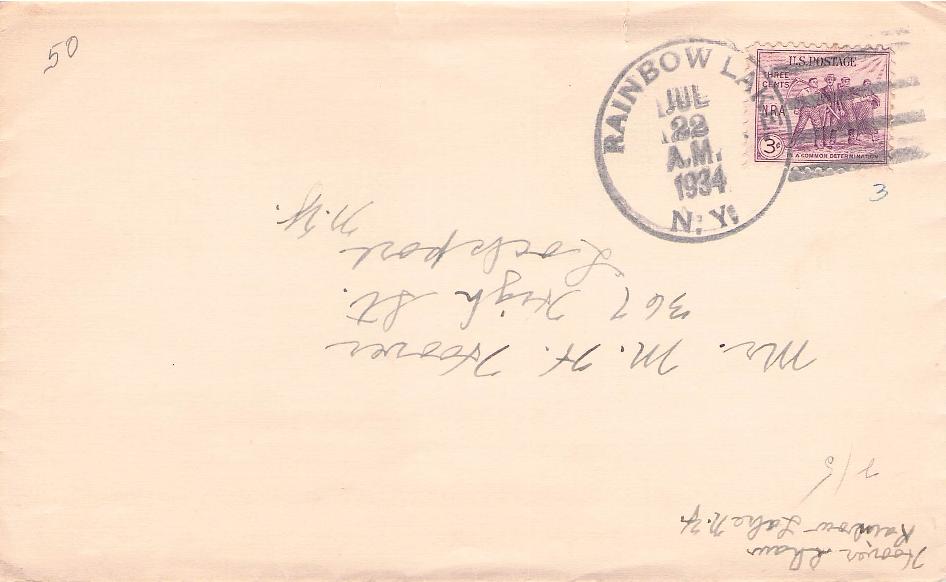 50
RAINBOW LAKE
JUL
22
A.M.
1934
N.Y.
U.S. POSTAGE
THREE
CENTS
NRA
3¢
IN A COMMON DETERMINATION
3
Mr. M. H. Hoover
367 High St.
Lockport
N.Y.
Hoover Shaw
Rainbow Lake N.Y.